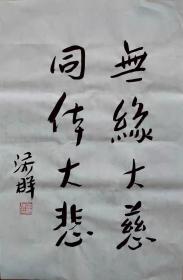 無緣大慈
同体大悲